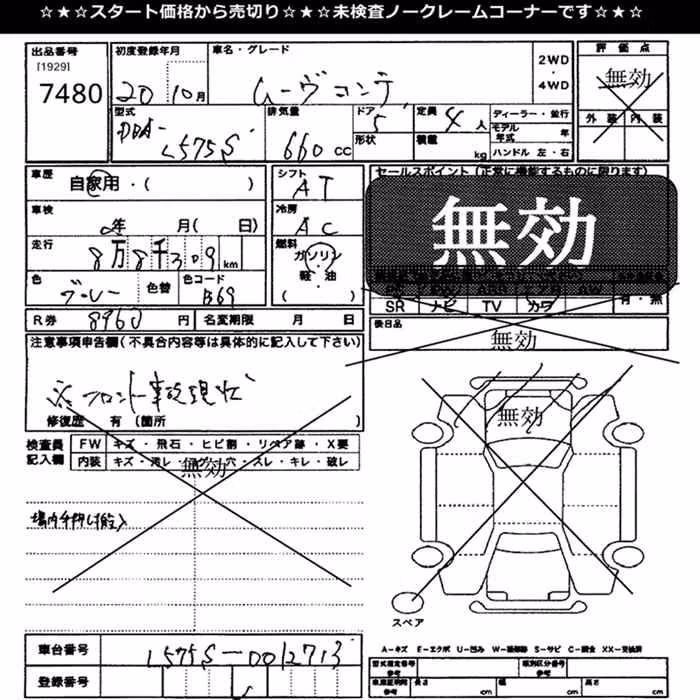 ☆★☆★スタート価格から売切り☆★☆★未検査ノークレームコーナーです☆★☆
出品番号 初度登録年月 車名・グレード 2WD・4WD 評価点
[1929]
7480 20 10月 ムーヴコンテ 無効
型式 排気量 ドア 定員 ディーラー・並行 外装 内装
DBA-L575S 660cc 5 4人 モデル年式 年
形状 積載 kg ハンドル 左・右
車歴 自家用・( ) シフト AT セールスポイント(正常に機能するものに限ります)
車検 年 月( 日) 冷房 AC 無効
走行 8万8千309km 燃料 ガソリン・軽・油 ( )
色 グレー 色替 色コード B69
SR ナビ TV カワ 有・無
R券 8960円 名変期限 月 日 後日品
無効
注意事項申告欄(不具合内容等は具体的に記入して下さい)
※フロント事故現状
修復歴 有(箇所 )
無効
検査員記入欄 FW キズ・飛石・ヒビ割・リペア跡・X要
内装 キズ・汚レ・穴・スレ・キレ・破レ
無効
場内手押し
スペア
A-キズ E-エクボ U-凹み S-サビ
車台番号 L575S-0012713
登録番号
型式指定番号 参考 類別区分番号 参考
参考 長さ cm 幅 cm 高さ cm